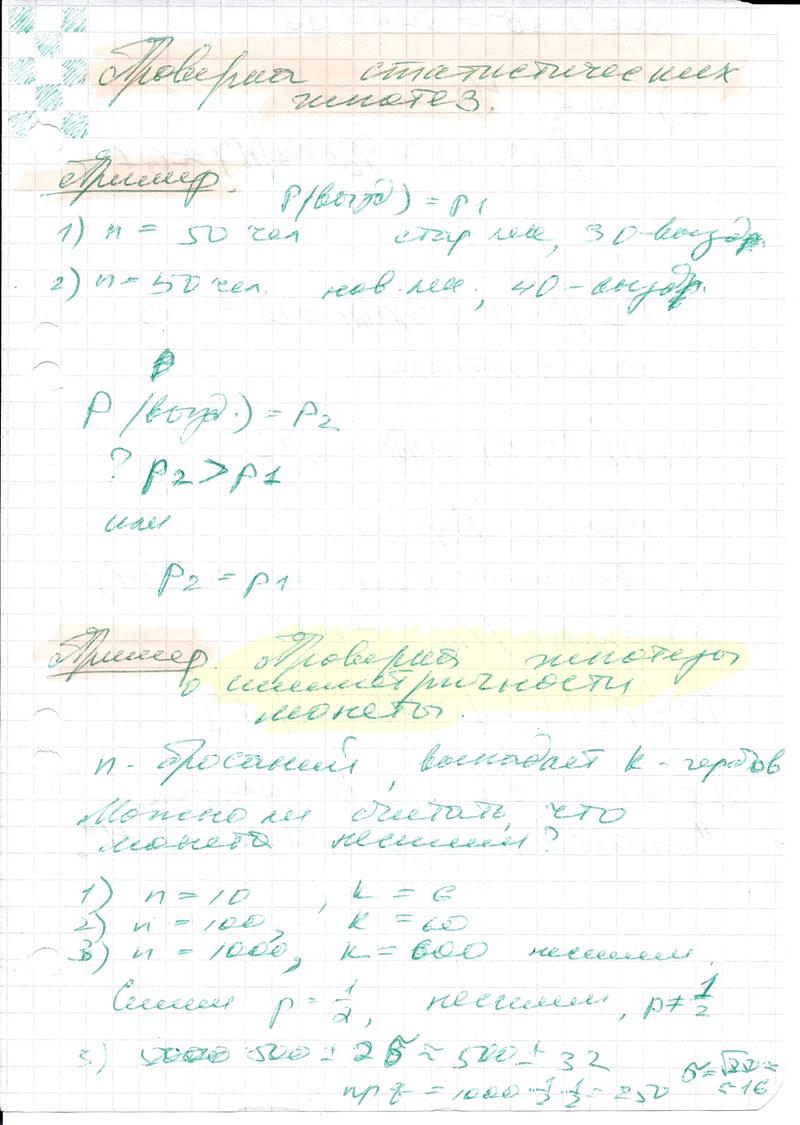 Проверка статистических
гипотез.
Пример.
P(вызд) = p1
1) n = 50 чел стар лек, 30-выздр.
2) n = 50 чел. нов. лек; 40-выздр.
P (вызд.) = p2
? p2 > p1
или
p2 = p1
Пример. Проверка гипотезы
о симметричности
монеты.
n - бросаний, выпадает k - гербов
Можно ли считать, что
монета несимм?
1) n = 10, k = 6
2) n = 100, k = 60
3) n = 1000, k = 600 несимм.
Симм p = 1/2, несимм, p ≠ 1/2
3) 500 ± 2σ ≈ 500 ± 32
npq = 1000 · 1/2 · 1/2 = 250
≈ 16